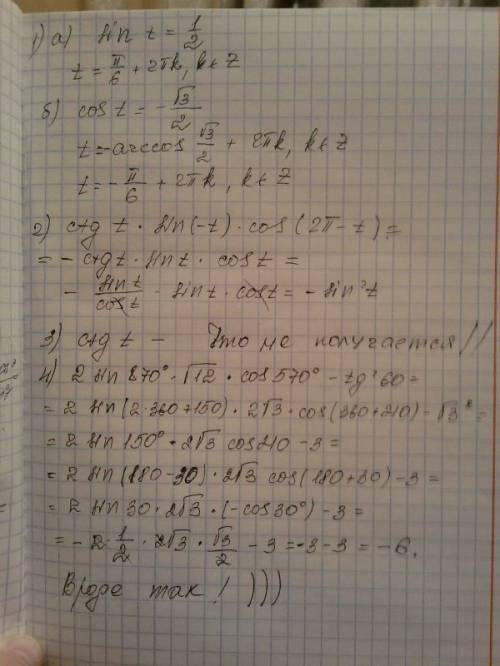 1) а) sin t = 1/2
t = π/6 + 2πk, k∈Z
б) cos t = -√3/2
t = -arccos √3/2 + 2πk, k∈Z
t = -π/6 + 2πk, k∈Z
2) ctg t · sin(-t) · cos(2π-t) =
= - ctg t · sin t · cos t =
- sin t/cos t · sin t · cos t = - sin²t
3) ctg t - Что-то не получается //
4) 2 sin 870° · √12 · cos 570° - tg² 60 =
= 2 sin(2·360+150) · 2√3 · cos(360+210) - √3² =
= 2 sin 150° · 2√3 cos 210 - 3 =
= 2 sin(180-30) · 2√3 cos(180+30) - 3 =
= 2 sin 30 · 2√3 · (-cos 30°) - 3 =
= - 2 · 1/2 · 2√3 · √3/2 - 3 = -3-3 = -6.
Вроде так! )))